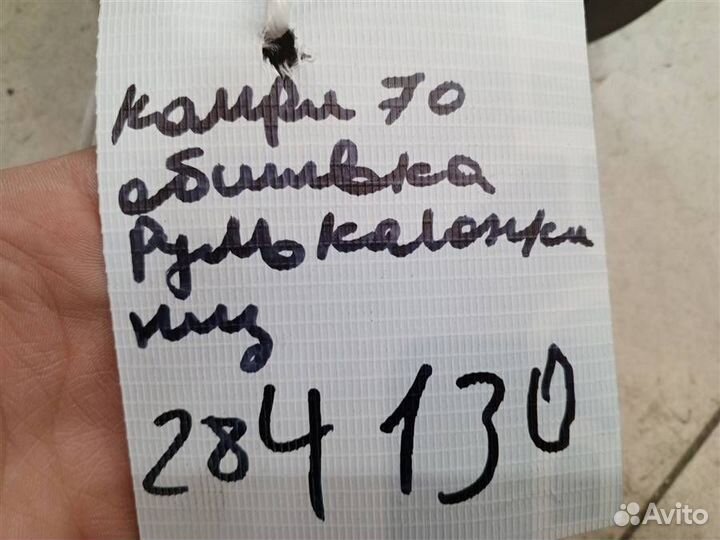 камри 70
обшивка
Руль калонки
низ
284 130
Avito